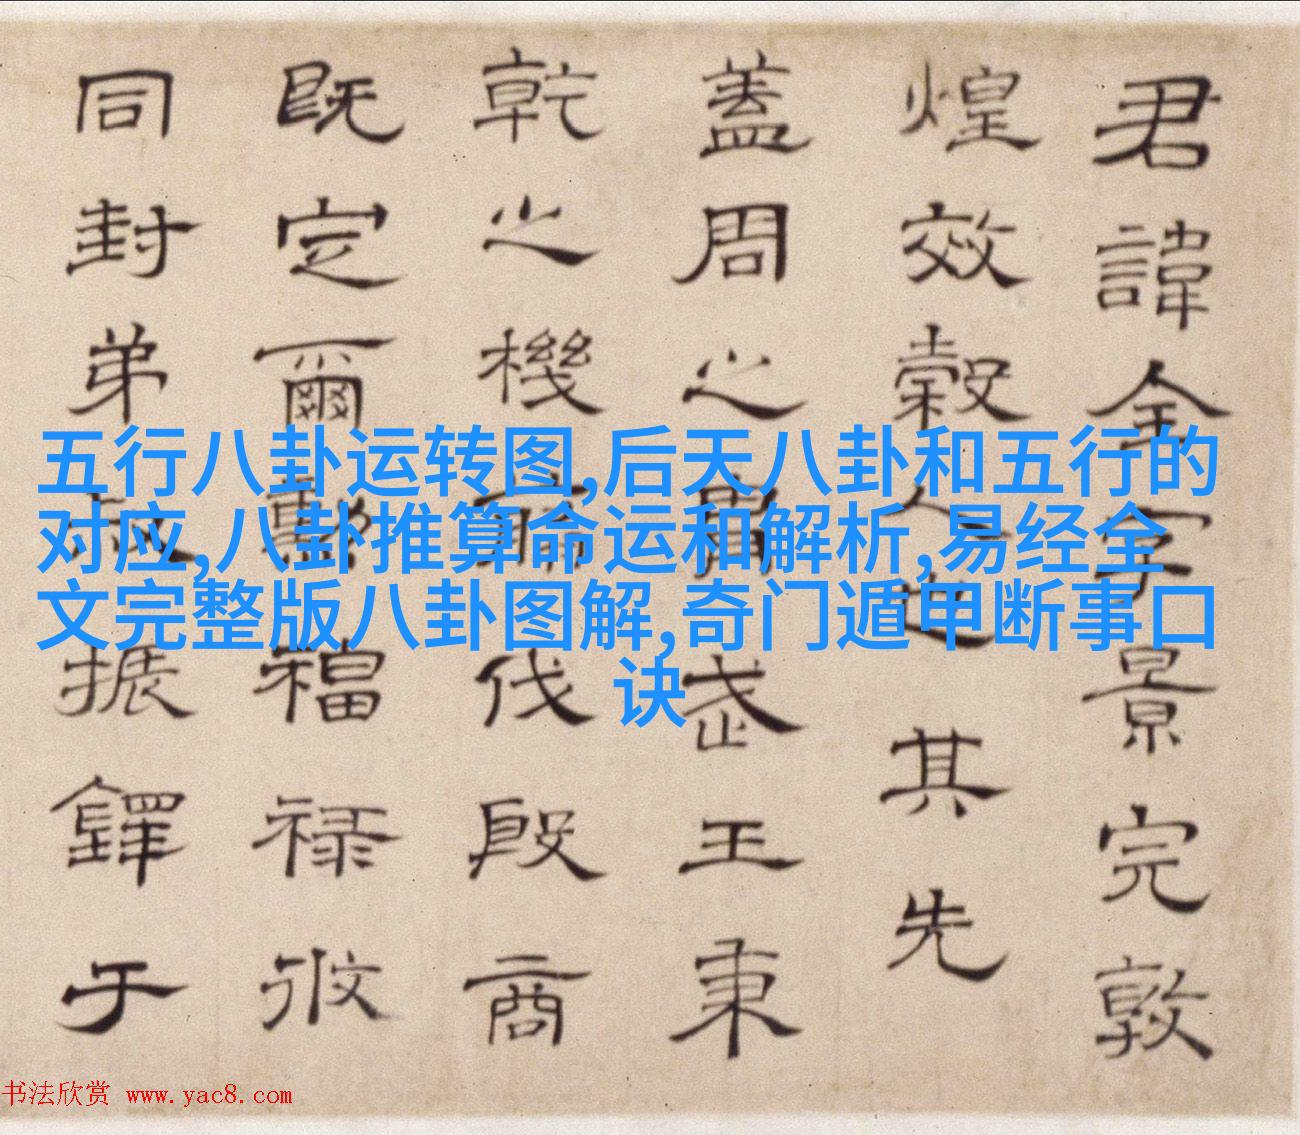 君諱全字景完敦
煌效穀人也其先
蓋周之胄武王秉
乾之機翦伐殷商
既定爾勳福祿攸
同封弟叔振鐸于
五行八卦运转图,后天八卦和五行的
对应,八卦推算命运和解析,易经全
文完整版八卦图解,奇门遁甲断事口
诀
书法欣赏 www.yac8.com